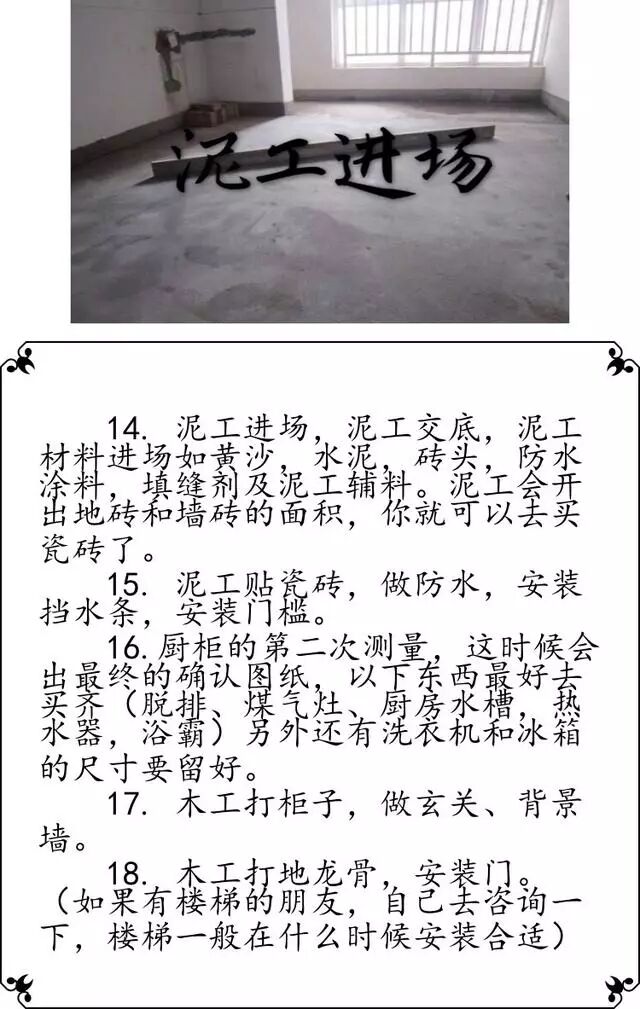 泥工进场
14. 泥工进场，泥工交底，泥工
材料进场如黄沙，水泥，砖头，防水
涂料，填缝剂及泥工辅料。泥工会开
出地砖和墙砖的面积，你就可以去买
瓷砖了。
15. 泥工贴瓷砖，做防水，安装
挡水条，安装门槛。
16.厨柜的第二次测量，这时候会
出最终的确认图纸，以下东西最好去
买齐（脱排、煤气灶、厨房水槽，热
水器，浴霸）另外还有洗衣机和冰箱
的尺寸要留好。
17. 木工打柜子，做玄关、背景
墙。
18. 木工打地龙骨，安装门。
（如果有楼梯的朋友，自己去咨询一
下，楼梯一般在什么时候安装合适）